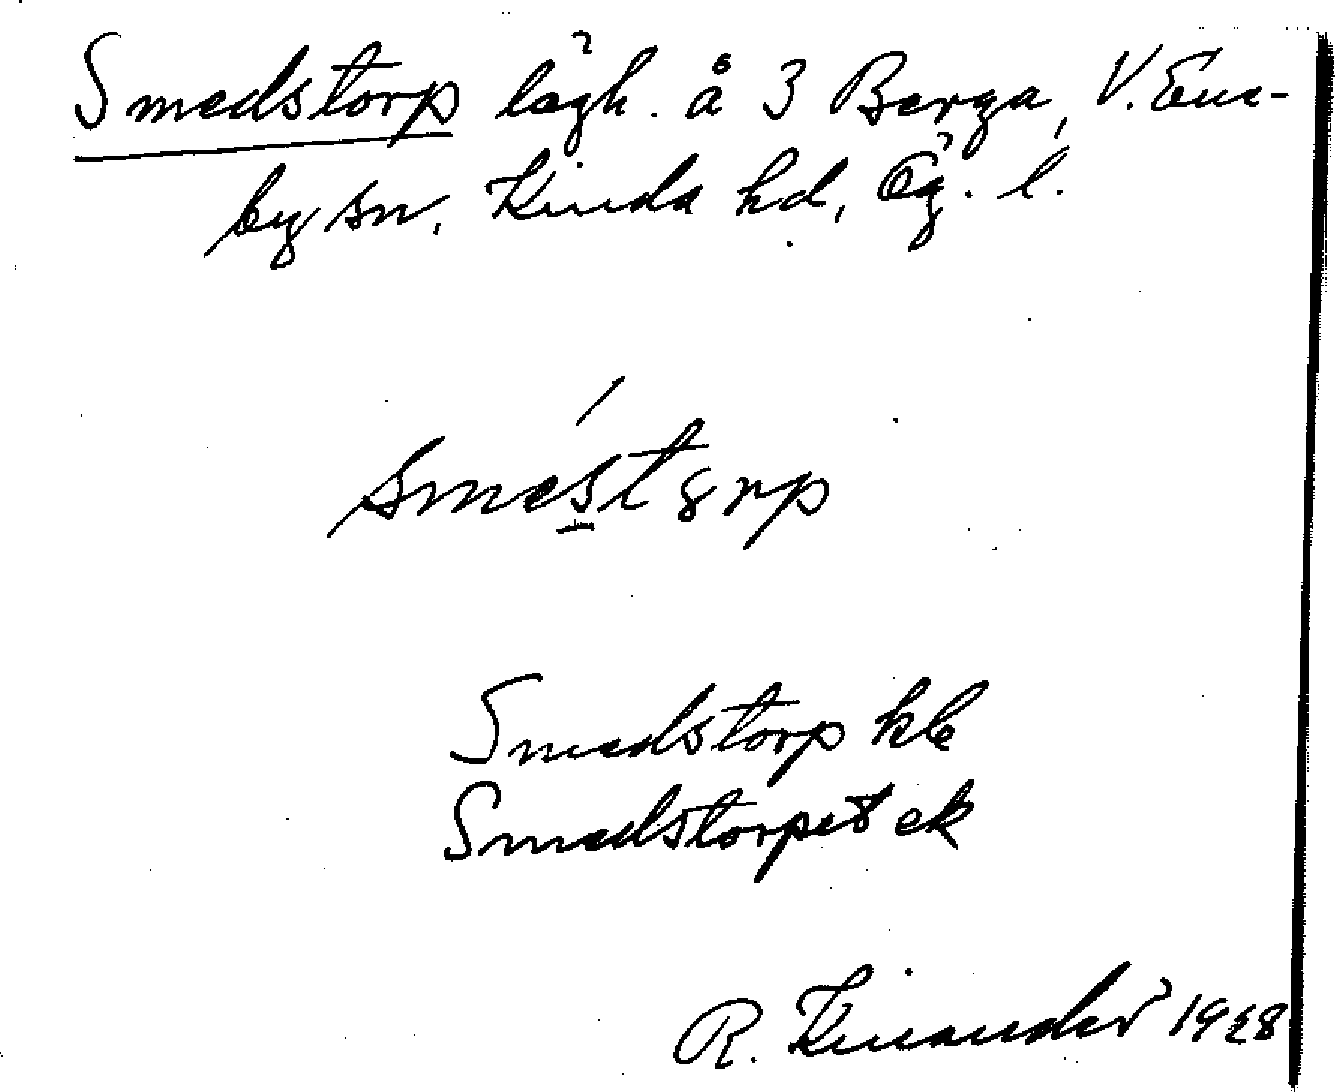 Smedstorp lägh. å 3 Berga, V. Ene-
by sn, Kinda hd, Ög. l.
smestɞrp
Smedstorp kb
Smedstorpet ek
R. Kinander 1928